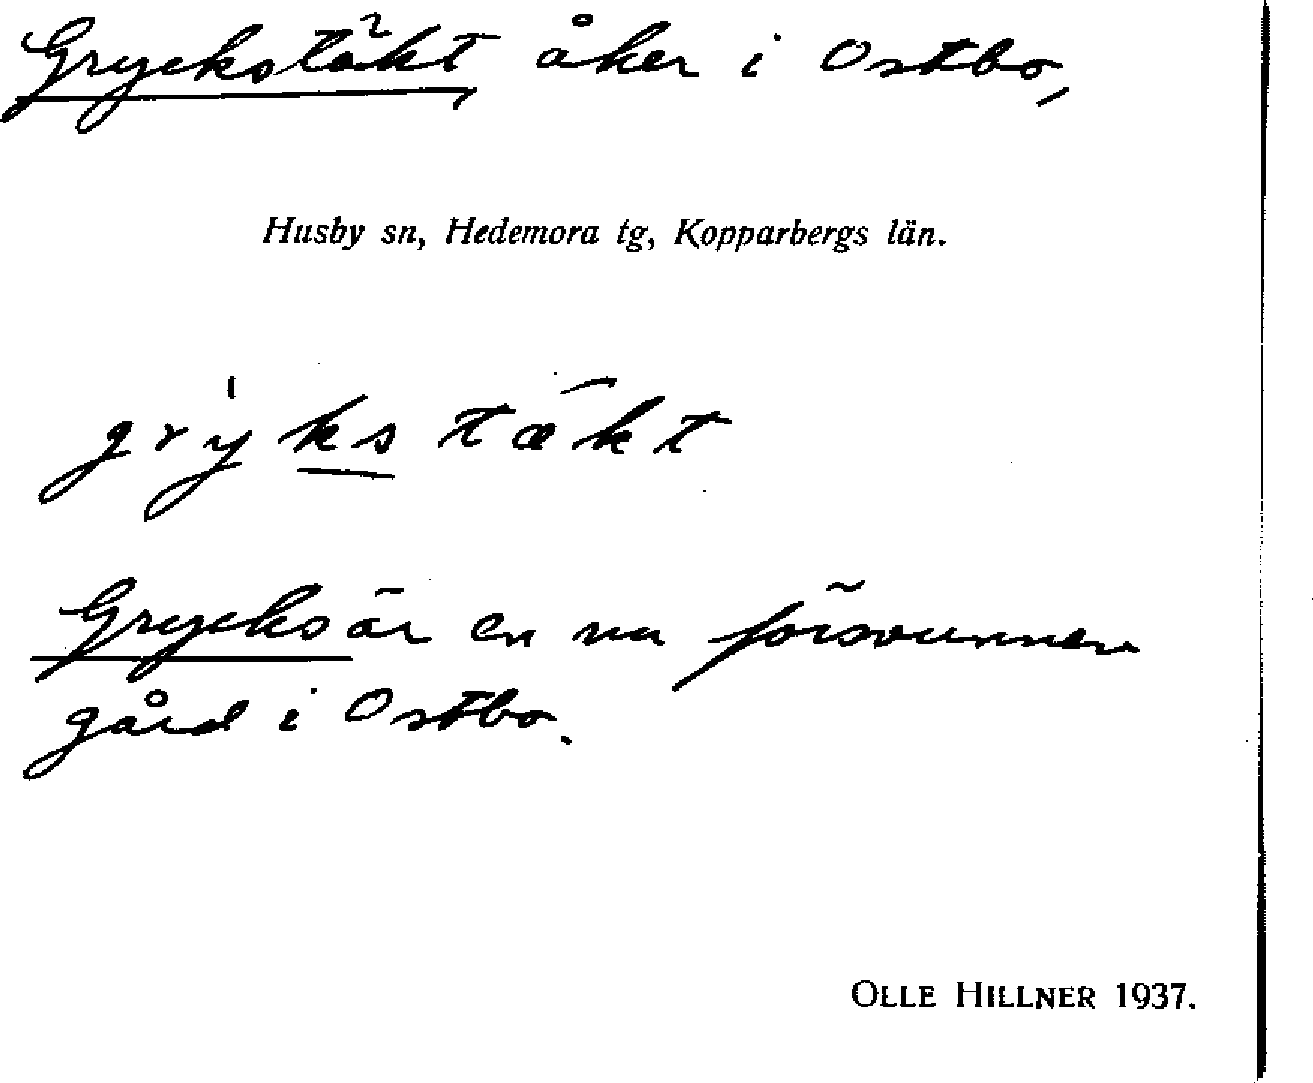 Gryckstäkt, åker i Ostbo,
Husby sn, Hedemora tg, Kopparbergs län.
grýkstækt
Grycks är en nu försvunnen
gård i Ostbo.
OLLE HILLNER 1937.